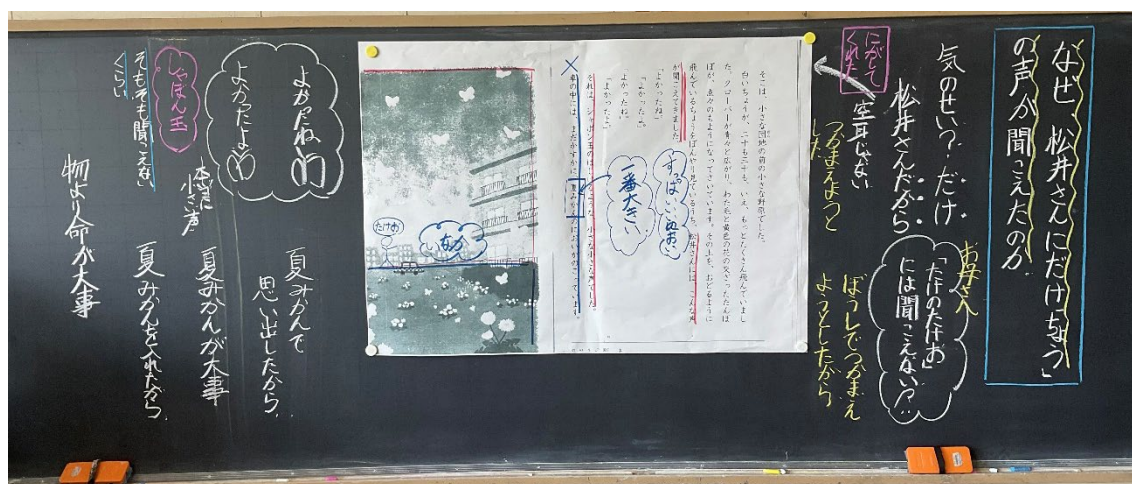 なぜ、松井さんにだけ「ちょう」
の声が聞こえたのか
気のせい？だけ
松井さんだから
お母さん
「たけのたけお」
には聞こえない!?
ぼうしでつかまえ
ようとしたから
にがして
くれた
空耳じゃない
つかまえようと
した
そこは、小さな団地の前の小さな野原でした。
白いちょうが、二十も三十も、いえ、もっとたくさん飛んでいまし
た。クローバーが青々と広がり、わた毛と黄色の花の交ざったたんぽ
ぽが、点々のもようになってさいています。その上を、おどるように
飛んでいるちょうをぼんやり見ているうち、松井さんには、こんな声
が聞こえてきました。
「よかったね。」
「よかったよ。」
「よかったね。」
「よかったよ。」
それは、シャボン玉のはじけるような、小さな小さな声でした。
車の中には、まだかすかに、夏みかんのにおいがのこっています。
すっぱいにおい
一番大きい
たけお
夏みかんで
思い出したから
よかったね
よかったよ
本当に
小さい声
夏みかんが大事
しゃぼん玉
そもそも聞こえない
くらい
夏みかんを入れたから
物より命が大事